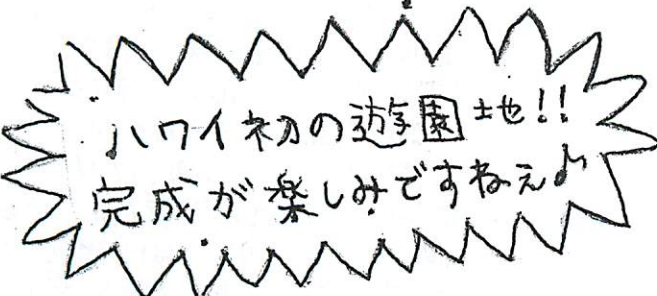 ハワイ初の遊園地!!
完成が楽しみですねえ♪